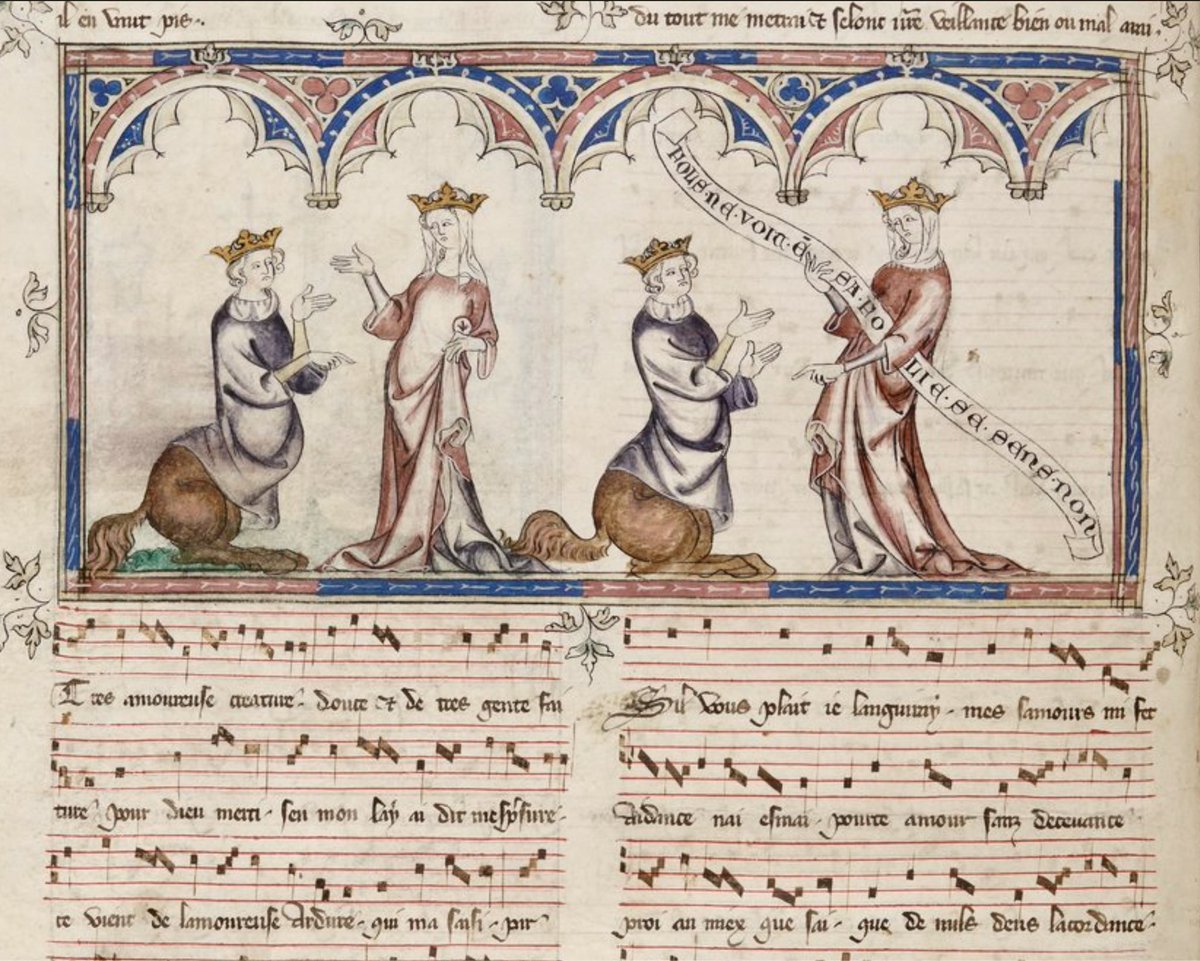 il en vaut pis
du tout me metrai et selonc vre veillance bien ou mal arai
FOUS·NE·VOIT·EN·SA·FOLIE·SE·SENS·NON
Tres amoureuse creature douce et de tres gente fai
ture pour dieu merci sen mon lay ai dit mespsure
te vient de lamoureuse Ardure qui ma saisi pir
Sil vous plait ie languiray mes samours mi fet
Aidance nai esmai pource amour sanz decevance
proi au mex que sai que de nuls dens lacordance